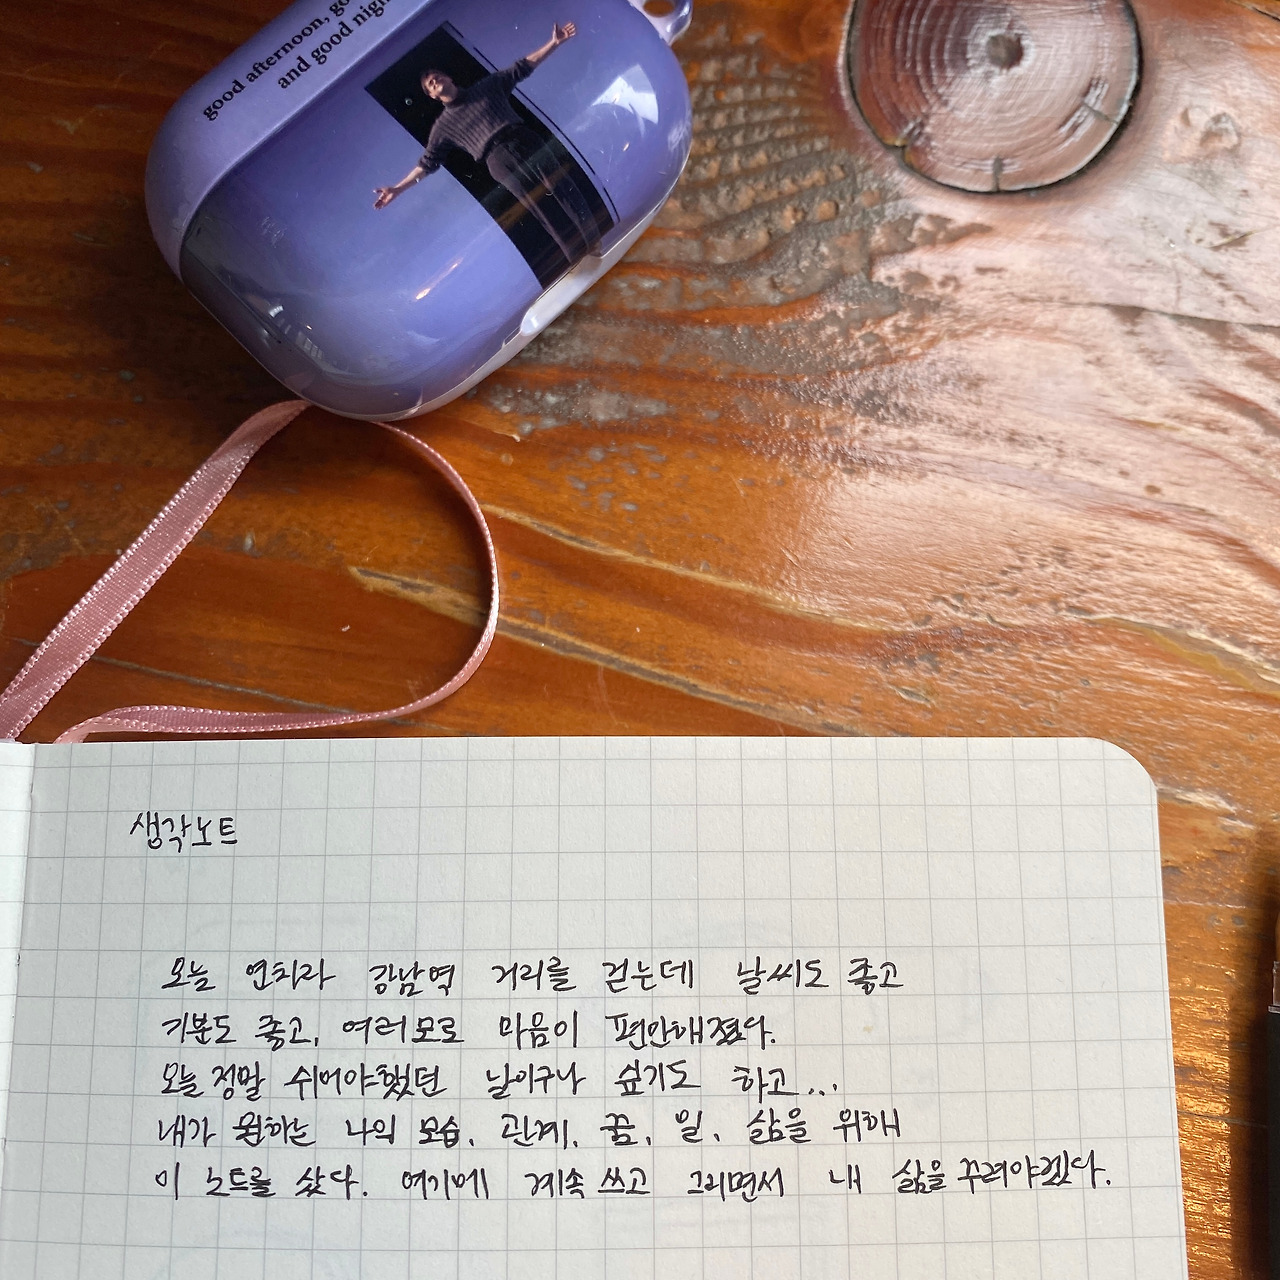 good afternoon, go
and good nigh
생각노트
오늘 연차라 강남역 거리를 걷는데 날씨도 좋고
기분도 좋고, 여러모로 마음이 편안해졌다.
오늘 정말 쉬어야했던 날이구나 싶기도 하고...
내가 원하는 나의 모습, 관계, 꿈, 일, 삶을 위해
이 노트를 샀다. 여기에 계속 쓰고 그리면서 내 삶을 꾸려야겠다.